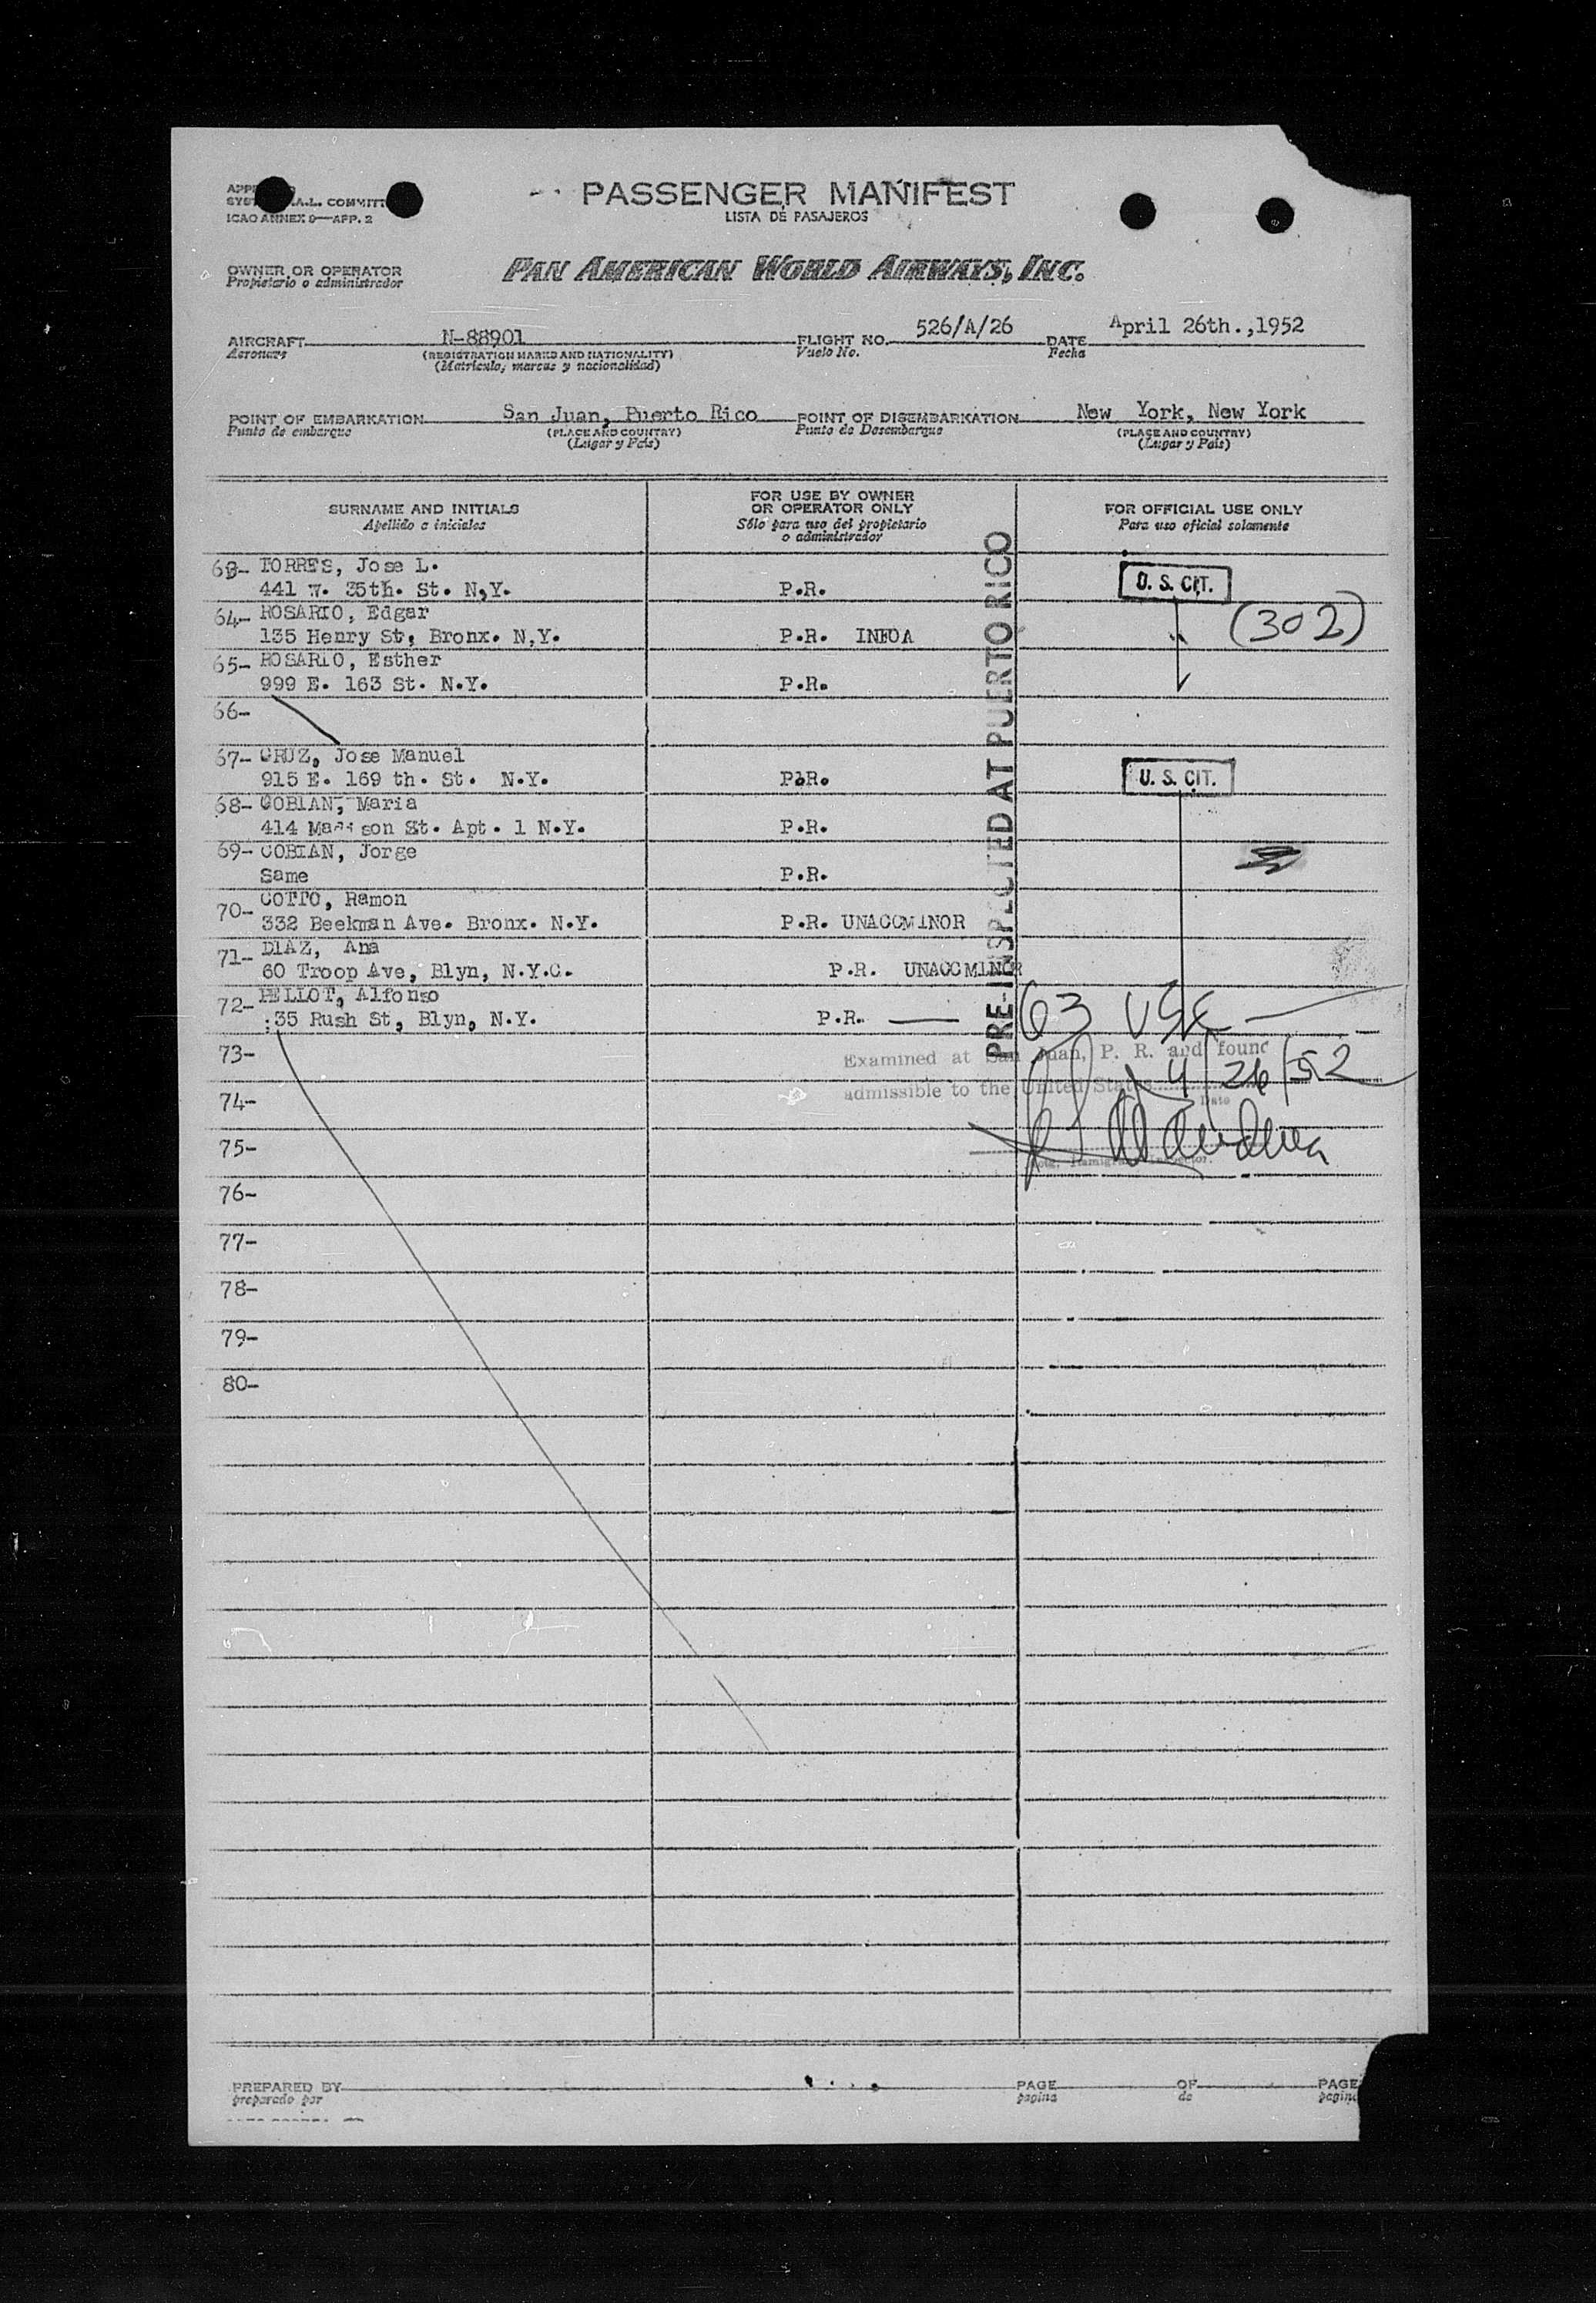 PASSENGER MANIFEST
LISTA DE PASAJEROS
A.L. COMMITT
ICAO ANNEX 9—APP. 2
OWNER OR OPERATOR
Propietario o administrador
PAN AMERICAN WORLD AIRWAYS, INC.
AIRCRAFT N-88901 FLIGHT NO. 526/A/26 DATE April 26th.,1952
Aeronave (REGISTRATION MARKS AND NATIONALITY) Vuelo No. Fecha
(Matrícula, marcas y nacionalidad)
POINT OF EMBARKATION San Juan, Puerto Rico POINT OF DISEMBARKATION New York, New York
Punto de embarque (PLACE AND COUNTRY) Punto de Desembarque (PLACE AND COUNTRY)
(Lugar y País) (Lugar y País)
SURNAME AND INITIALS FOR USE BY OWNER OR OPERATOR ONLY FOR OFFICIAL USE ONLY
Apellido e iniciales Sólo para uso del propietario o administrador Para uso oficial solamente
63- TORRES, Jose L.
441 W. 35th. St. N,Y. P.R. U. S. CIT.
64- ROSARIO, Edgar (302)
135 Henry St, Bronx. N,Y. P.R. INFOA
65- ROSARIO, Esther
999 E. 163 St. N.Y. P.R.
66-
67- CRUZ, Jose Manuel
915 E. 169 th. St. N.Y. P.R. U. S. CIT.
68- COBIAN, Maria
414 Madison St. Apt. 1 N.Y. P.R.
69- COBIAN, Jorge
Same P.R.
70- COTTO, Ramon
332 Beekman Ave. Bronx. N.Y. P.R. UNACCMINOR
71- DIAZ, Ana
60 Troop Ave, Blyn, N.Y.C. P.R. UNACCMINOR
72- PELLOT, Alfonso
:35 Rush St, Blyn, N.Y. P.R. 63 USC
PRE-INSPECTED AT PUERTO RICO
73- Examined at San Juan, P. R. and found
admissible to the United States 4/26/52
Date
74-
75-
Immigrant Inspector.
76-
77-
78-
79-
80-
PREPARED BY PAGE OF PAGE
preparado por pagina de pagina